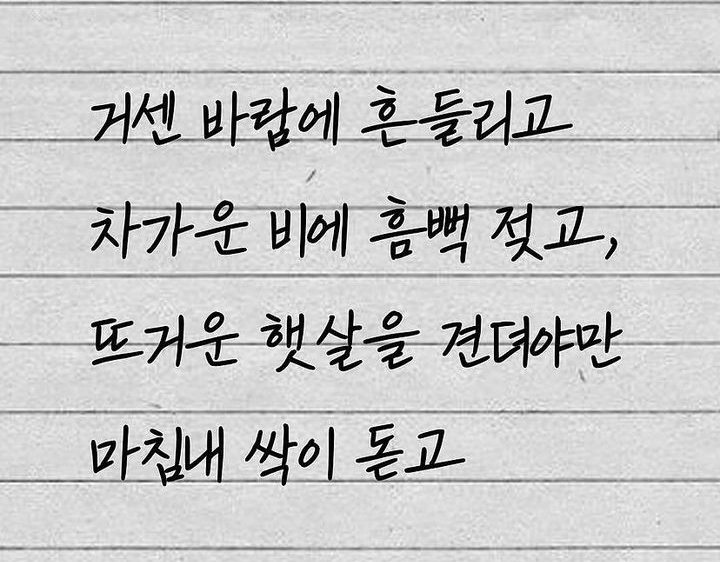 거센 바람에 흔들리고
차가운 비에 흠뻑 젖고,
뜨거운 햇살을 견뎌야만
마침내 싹이 돋고